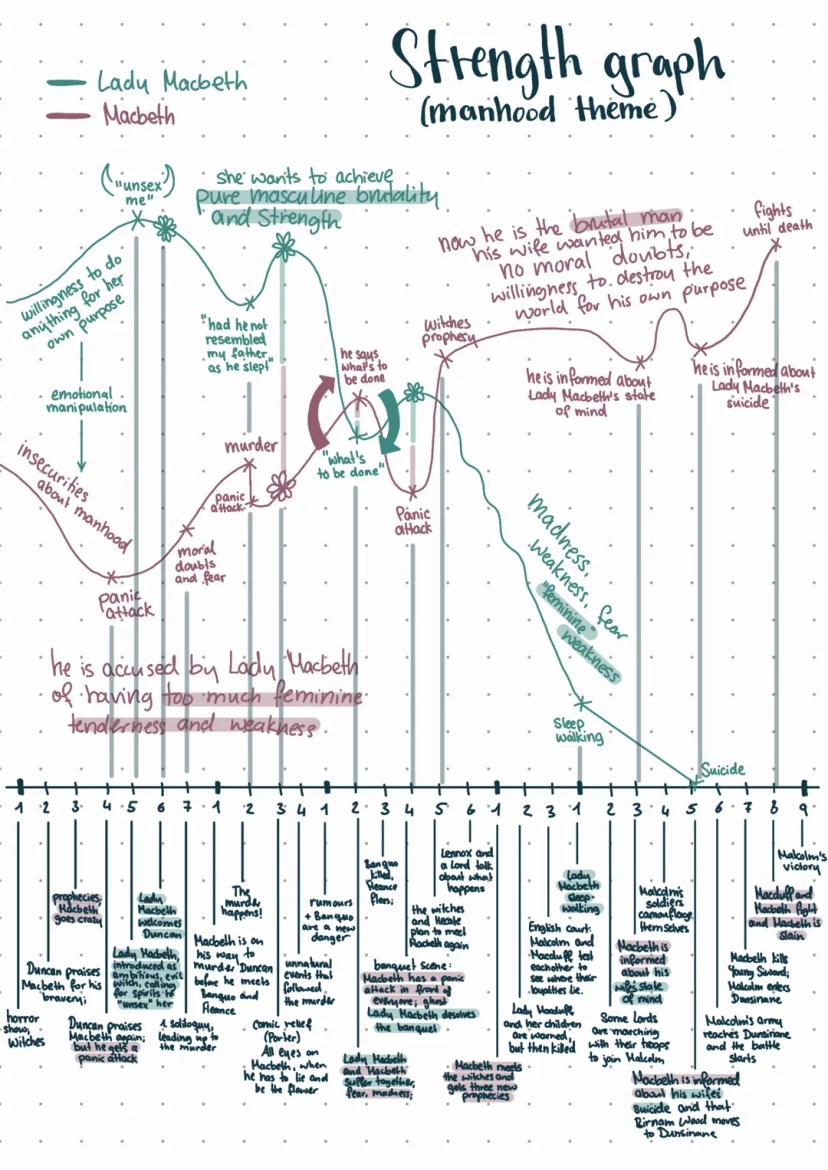 Strength graph
(manhood theme)
Lady Macbeth
Macbeth
("unsex
me")
she wants to achieve
pure masculine brutality
and strength
willingness to do
anything for her
own purpose
emotional
manipulation
"had he not
resembled
my father
as he slept"
now he is the brutal man
his wife wanted him to be
no moral doubts,
willingness to destroy the
world for his own purpose
fights
until death
Witches
prophesy
he says
what's to
be done
"what's
to be done"
he is informed about
Lady Macbeth's state
of mind
he is informed about
Lady Macbeth's
suicide
insecurities
about manhood
murder
panic
attack
panic
attack
moral
doubts
and fear
Panic
attack
madness,
weakness, fear
"feminine"
weakness
he is accused by Lady Macbeth
of having too much feminine
tenderness and weakness
Sleep
walking
Suicide
1 2 3 4 5 6 7 1 2 3 4 1 2 3 4 5 6 1 2 3 1 2 3 4 5 6 7 8 9
horror
show;
witches
Duncan praises
Macbeth for his
bravery;
prophecies;
Macbeth
goes crazy
Duncan praises
Macbeth again;
but he gets a
panic attack
Lady Macbeth,
introduced as
ambitious, evil
witch, calling
for spirits to
"unsex" her
Lady
Macbeth
welcomes
Duncan
1. soliloquy,
leading up to
the murder
Macbeth is on
his way to
murder Duncan
before he meets
Banquo and
Fleance
The
murder
happens!
Comic relief
(Porter)
All eyes on
Macbeth, when
he has to lie and
be the flower
unnatural
events that
followed
the murder
rumours
+ Banquo
are a new
danger
Lady Macbeth
and Macbeth
suffer together,
fear, madness;
Banquo
killed,
Fleance
flees;
banquet scene:
Macbeth has a panic
attack in front of
everyone; ghost
Lady Macbeth desolves
the banquet
the witches
and Hecate
plan to meet
Macbeth again
Lennox and
a Lord talk
about what
happens
Macbeth meets
the witches and
gets three new
prophecies
Lady Macduff
and her children
are warned,
but then killed
English court:
Malcolm and
Macduff test
eachother to
see where their
loyalties lie.
Lady
Macbeth
sleep-
walking
Some Lords
are marching
with their troops
to join Malcolm
Macbeth is
informed
about his
wifes state
of mind
Malcolm's
soldiers
camouflage
themselves
Macbeth is informed
about his wifes
suicide and that
Birnam Wood moves
to Dunsinane
Malcolm's army
reaches Dunsinane
and the battle
starts
Macbeth kills
Young Siward;
Malcolm enters
Dunsinane
Macduff and
Macbeth fight
and Macbeth is
slain
Malcolm's
victory